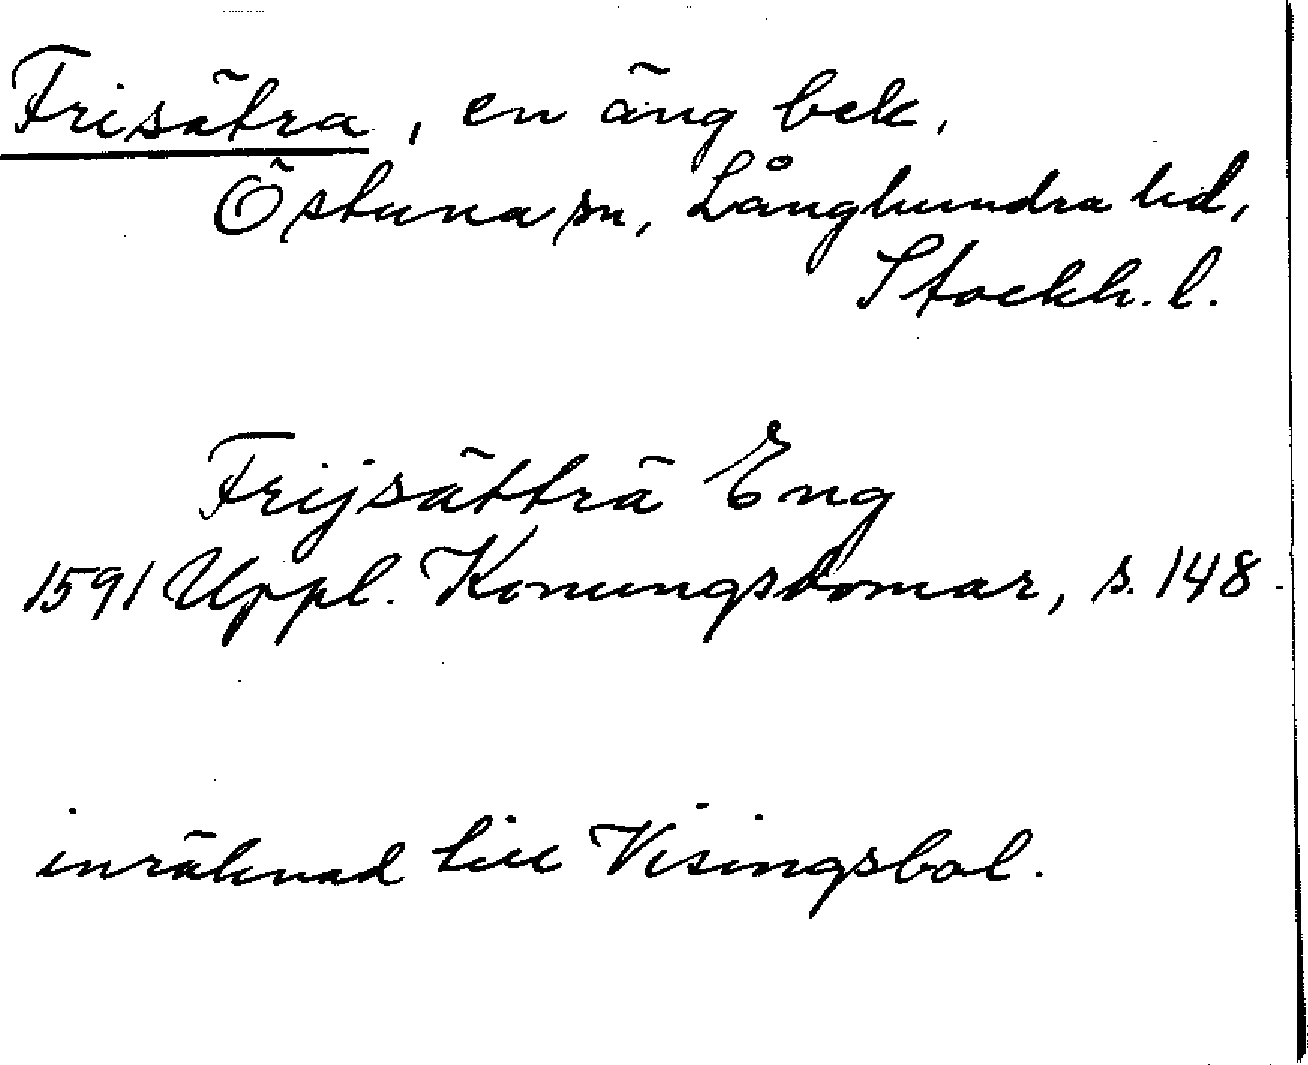 Frisätra, en äng bek,
Östuna sn, Långhundra hd,
Stockh. l.
Frijsätträ Eng
1591 Uppl. Konungsdomar, s. 148.
inräknad till Visingsbol.